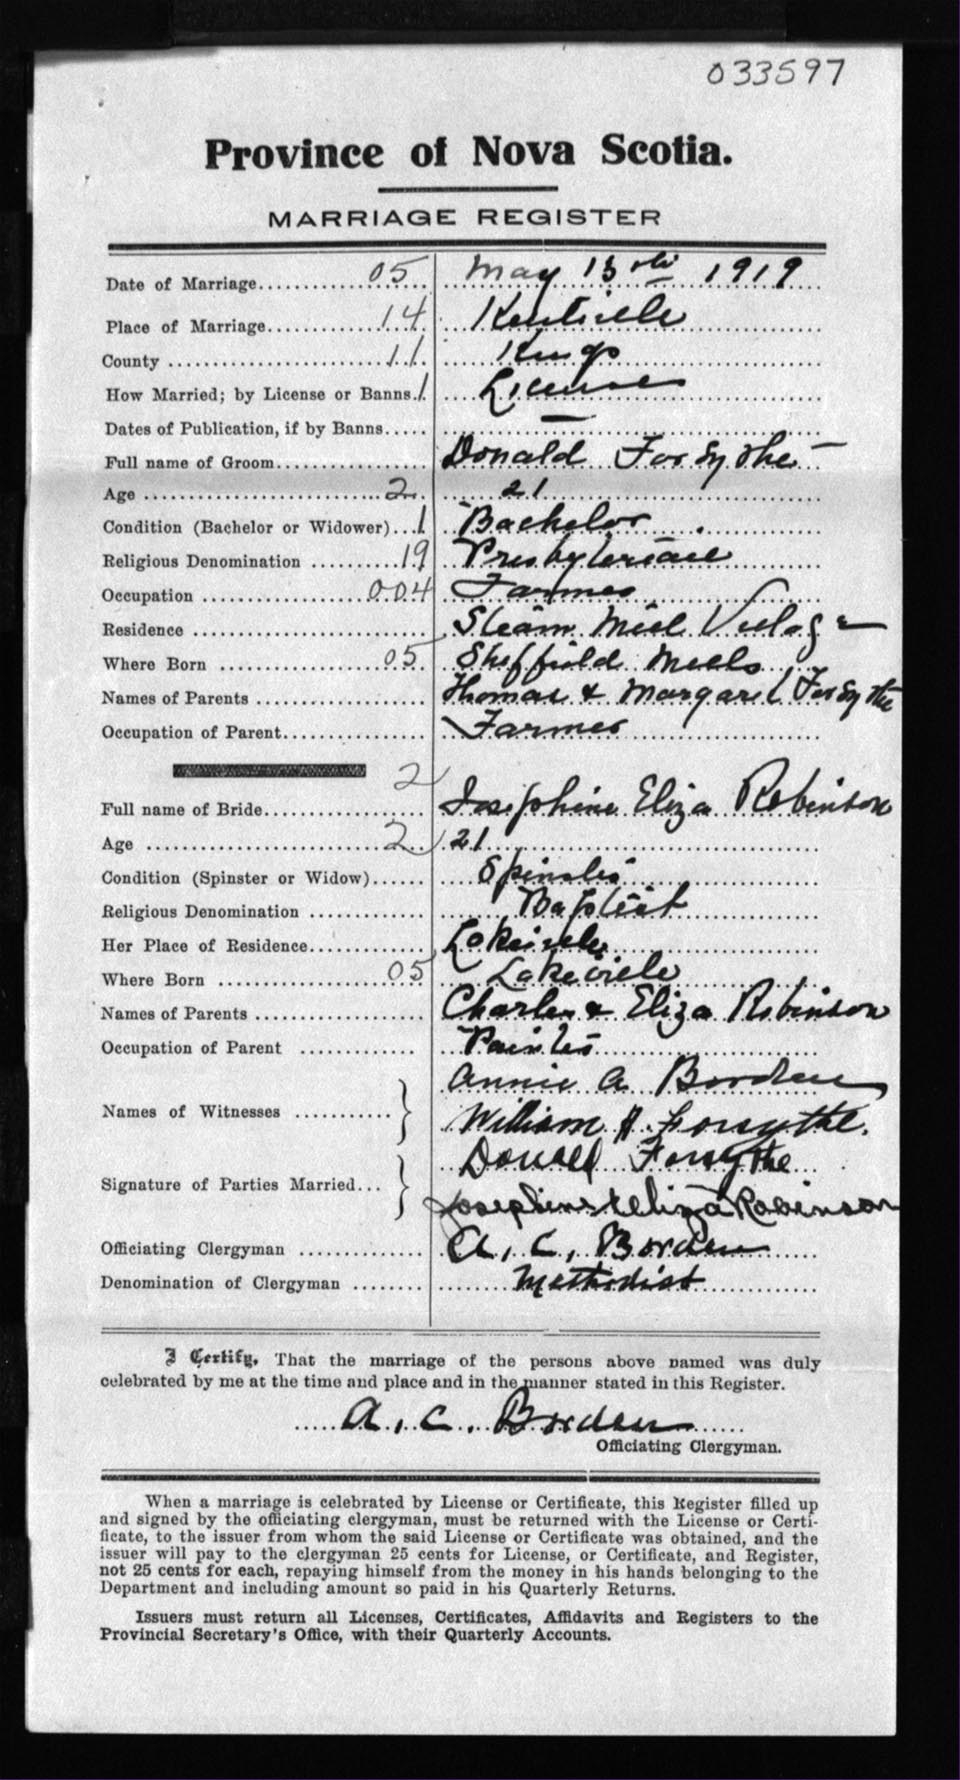 033597
Province of Nova Scotia.
MARRIAGE REGISTER
Date of Marriage 05 May 13th 1919
Place of Marriage 14 Kentville
County 11 Kings
How Married; by License or Banns. 1 License
Dates of Publication, if by Banns —
Full name of Groom Donald Forsythe
Age 2 21
Condition (Bachelor or Widower) 1 Bachelor
Religious Denomination 19 Presbyterian
Occupation 004 Farmer
Residence Steam Mill Village
Where Born 05 Sheffield Mills
Names of Parents Thomas & Margaret Forsythe
Occupation of Parent Farmer
2
Full name of Bride Josephine Eliza Robinson
Age 2 21
Condition (Spinster or Widow) Spinster
Religious Denomination Baptist
Her Place of Residence Lakeville
Where Born 05 Lakeville
Names of Parents Charles & Eliza Robinson
Occupation of Parent Painter
Annie A Borden
Names of Witnesses
William H. Forsythe.
Donald Forsythe
Signature of Parties Married
Josephine Eliza Robinson
Officiating Clergyman A. C. Borden
Denomination of Clergyman Methodist
I Certify, That the marriage of the persons above named was duly
celebrated by me at the time and place and in the manner stated in this Register.
A. C. Borden
Officiating Clergyman.
When a marriage is celebrated by License or Certificate, this Register filled up
and signed by the officiating clergyman, must be returned with the License or Certi-
ficate, to the issuer from whom the said License or Certificate was obtained, and the
issuer will pay to the clergyman 25 cents for License, or Certificate, and Register,
not 25 cents for each, repaying himself from the money in his hands belonging to the
Department and including amount so paid in his Quarterly Returns.
Issuers must return all Licenses, Certificates, Affidavits and Registers to the
Provincial Secretary's Office, with their Quarterly Accounts.